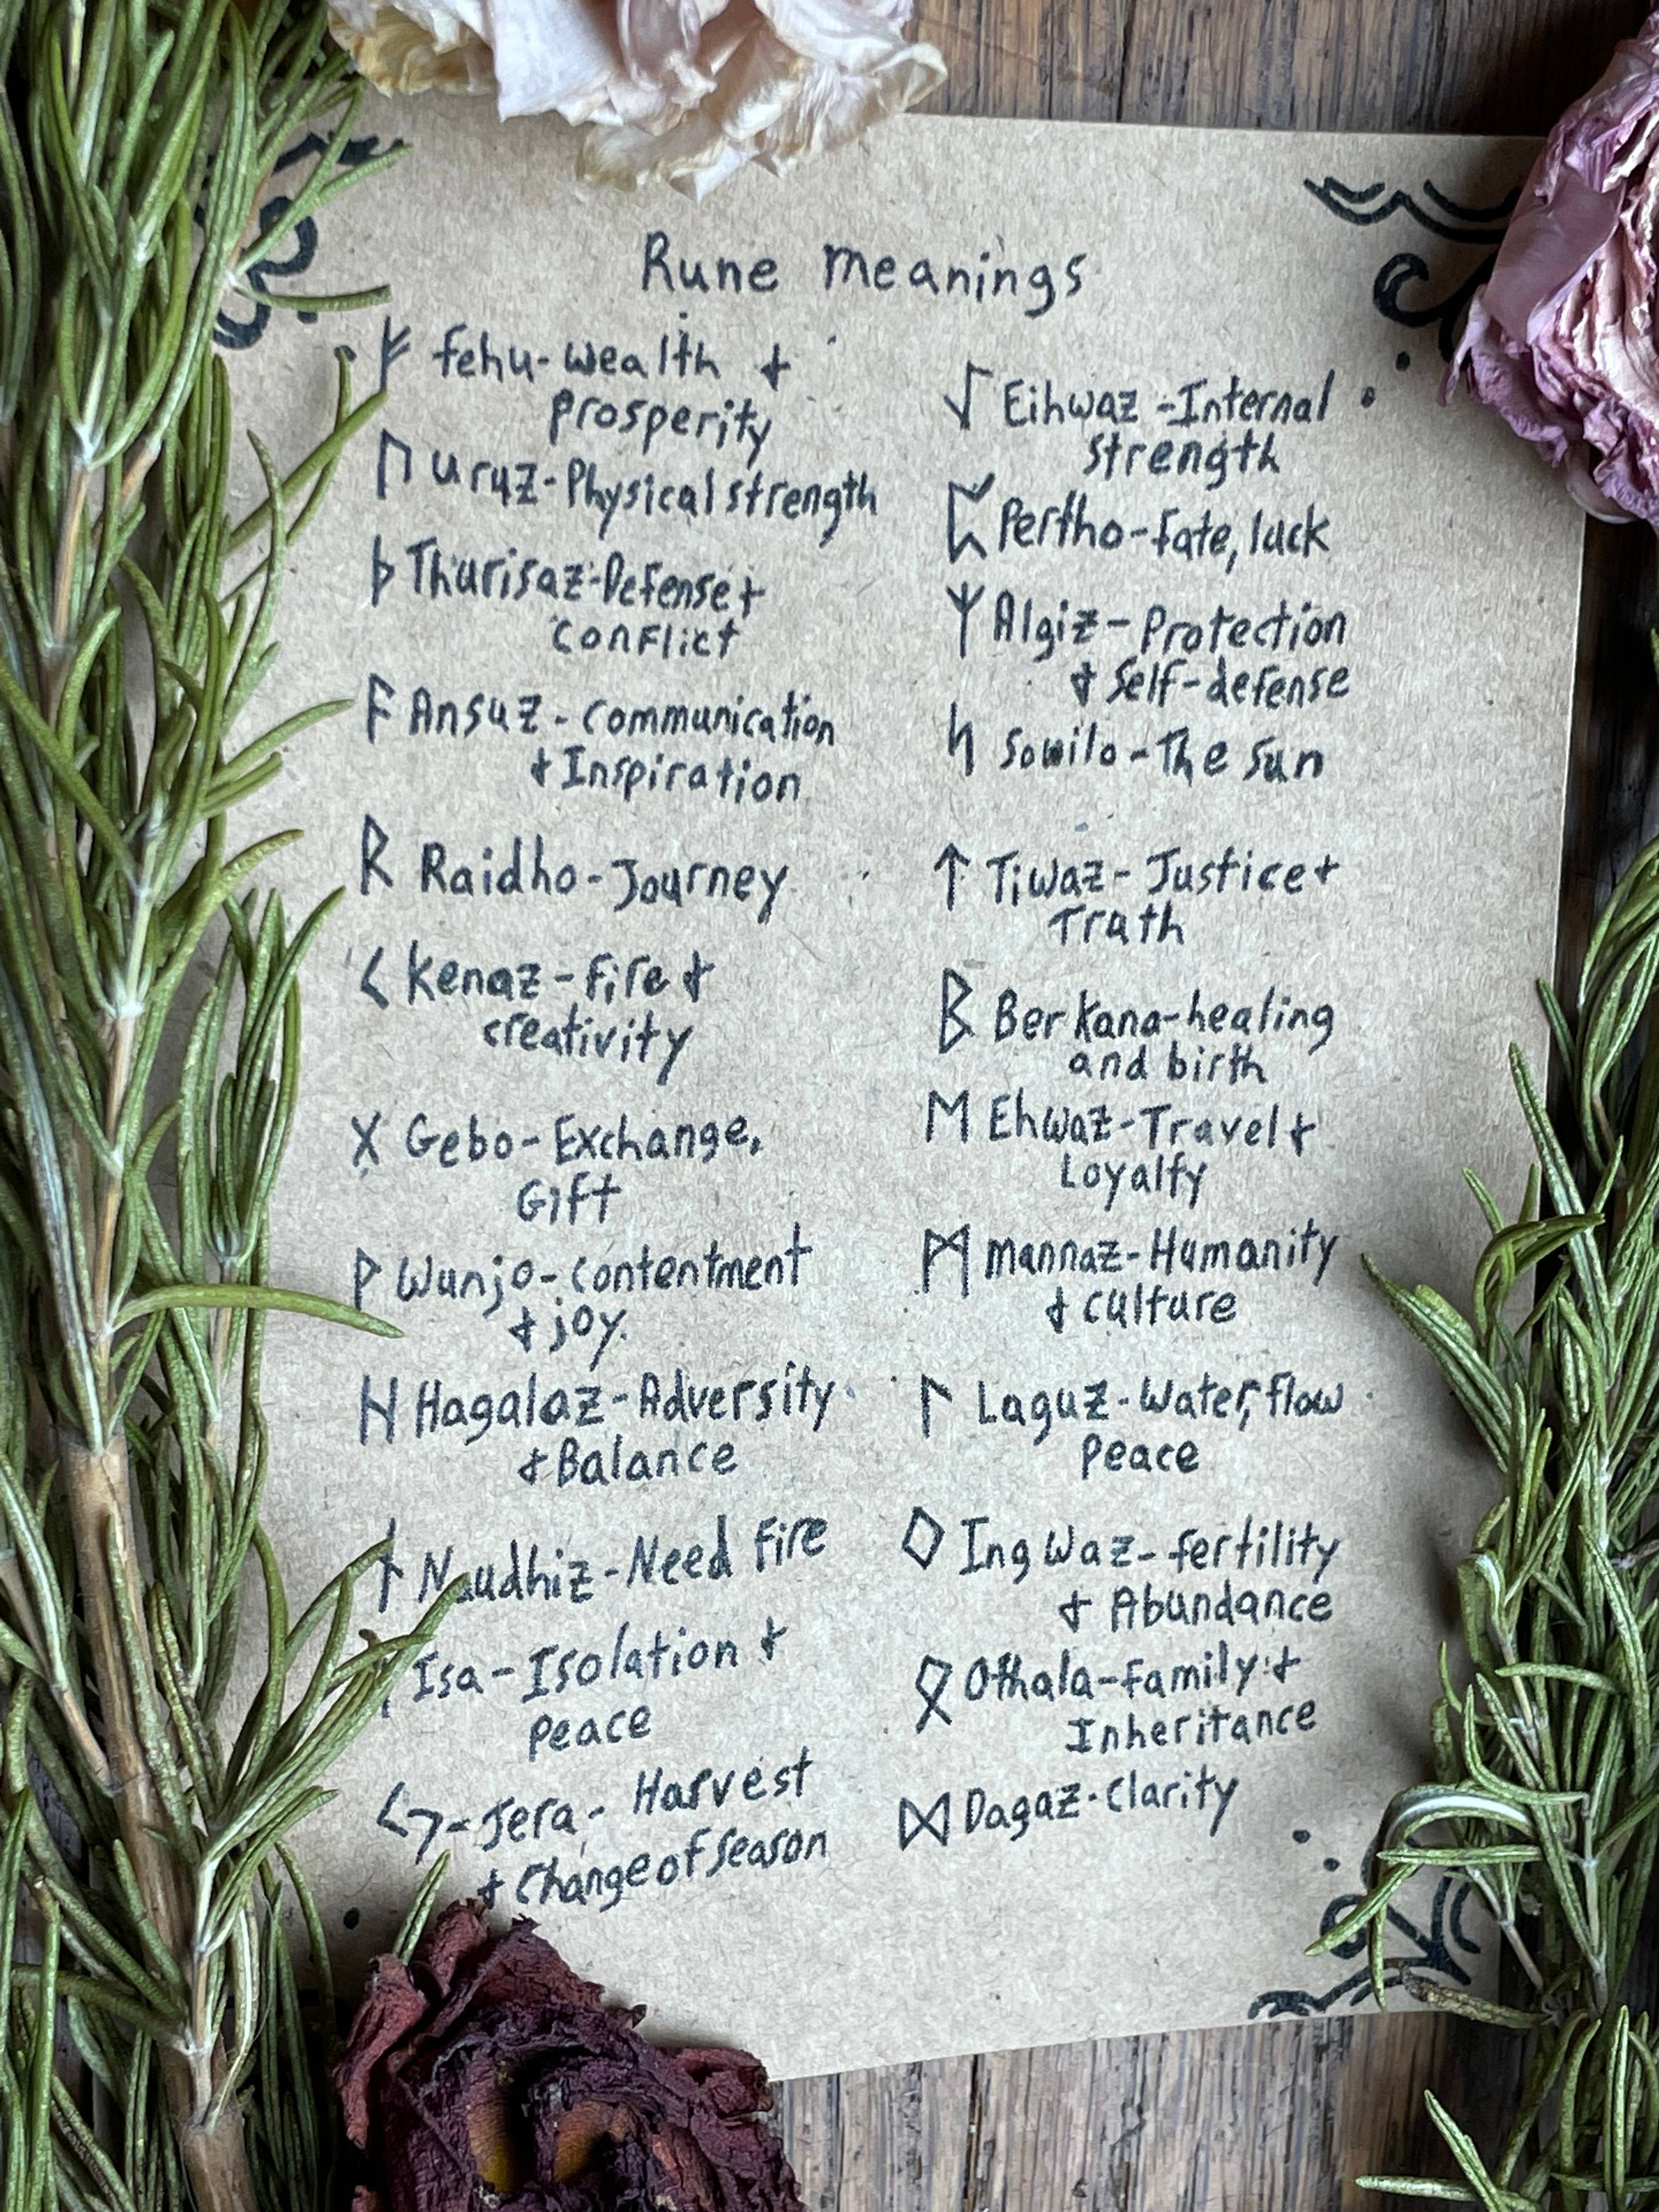 Rune meanings
ᚠ fehu-wealth &
prosperity
ᚢ uruz-Physical strength
ᚦ Thurisaz-Defense &
conflict
ᚨ Ansuz-communication
& Inspiration
ᚱ Raidho-Journey
ᚲ Kenaz-fire &
creativity
ᚷ Gebo-Exchange,
Gift
ᚹ Wunjo-contentment
& joy.
ᚺ Hagalaz-Adversity
& Balance
ᚾ Naudhiz-Need Fire
ᛁ Isa-Isolation &
Peace
ᛃ-Jera-Harvest
& Change of season
ᛇ Eihwaz-Internal
strength
ᛈ Pertho-fate, luck
ᛉ Algiz-Protection
& Self-defense
ᛋ Sowilo-The Sun
ᛏ Tiwaz-Justice &
Truth
ᛒ Berkana-healing
and birth
ᛖ Ehwaz-Travel &
Loyalty
ᛗ Mannaz-Humanity
& culture
ᛚ Laguz-Water, flow
Peace
ᛜ Ingwaz-fertility
& Abundance
ᛟ Othala-family &
Inheritance
ᛞ Dagaz-Clarity